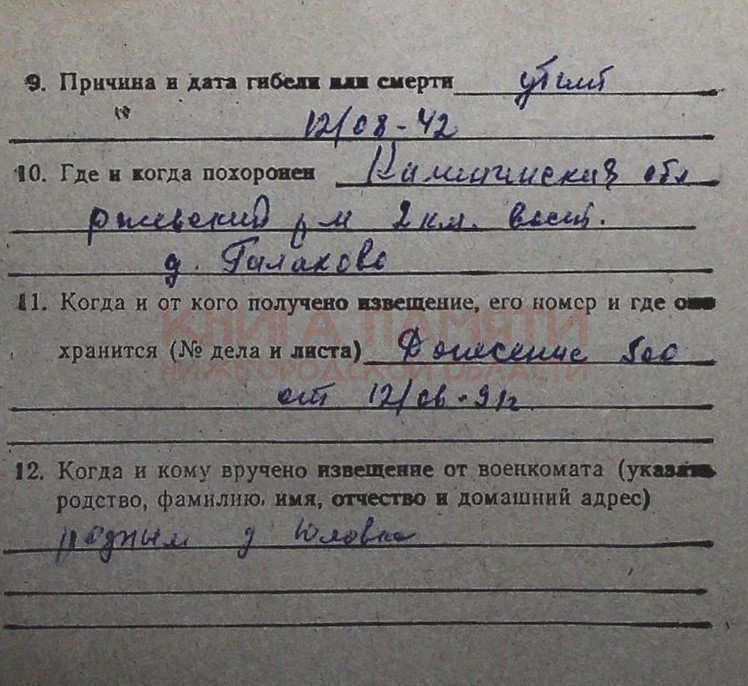 9. Причина и дата гибели или смерти убит
12/08-42
10. Где и когда похоронен Калининская обл
ржевский р-н 2 км. вост.
д. Галахово
11. Когда и от кого получено извещение, его номер и где оно
КНИГА ПАМЯТИ
хранится (№ дела и листа) Донесение 500
НИЖЕГОРОДСКОЙ ОБЛАСТИ
от 12/06-91г
12. Когда и кому вручено извещение от военкомата (указать
родство, фамилию, имя, отчество и домашний адрес)
родным д Юловка